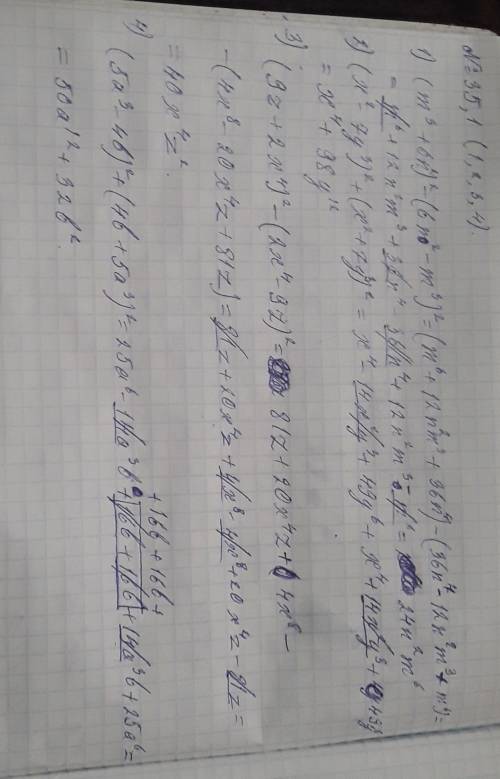 № 35,1 (1,2,3,4).
1) (m³ + 6n²)² - (6n² - m³)² = (m⁶ + 12n²m³ + 36n⁴) - (36n⁴ - 12n²m³ + m⁶) =
= m⁶ + 12n²m³ + 36n⁴ - 36n⁴ + 12n²m³ - m⁶ = 24n²m⁶
2) (x² - 7y³)² + (x² + 7y³)² = x⁴ - 14x²y³ + 49y⁶ + x⁴ + 14x²y³ + 49y
= x⁴ + 98y¹²
3) (9z + 2x⁴)² - (2x⁴ - 9z)² = 81z + 20x⁴z + 4x⁸ -
- (4x⁸ - 20x⁴z + 81z) = 81z + 20x⁴z + 4x⁸ - 4x⁸ + 20x⁴z - 81z =
= 40x⁴z².
4) (5a³ - 4b)² + (4b + 5a³)² = 25a⁶ - 14a³b + 16b + 16b + 14a³b + 25a⁶ =
+ 16b + 16b +
= 50a¹² + 32b².